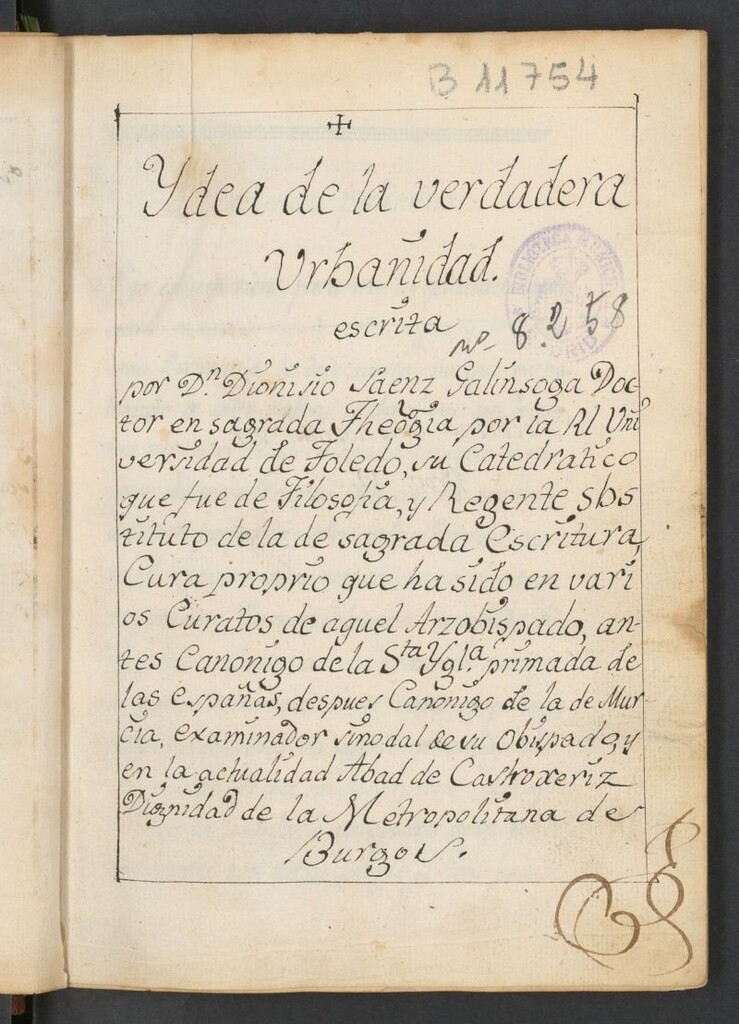 B 11754
+
Ydea de la verdadera
Vrbanidad.
escrita
nº 8.258
BIBLIOTECA MUNICI
por Dn. Dionisio Saenz Galinsoga Doc-
tor en sagrada Theogia por la Rl Vni
versidad de Toledo, su Catedratico
que fue de Filosofia, y Regente sbs
tituto de la de sagrada Escritura,
Cura proprio que ha sido en vari
os Curatos de aquel Arzobispado, an-
tes Canonigo de la Sta Ygla. primada de
las españas, despues Canonigo de la de Mur-
cia, examinador sinodal de su Obispado, y
en la actualidad Abad de Castroxeriz
Dignidad de la Metropolitana de
Burgos.